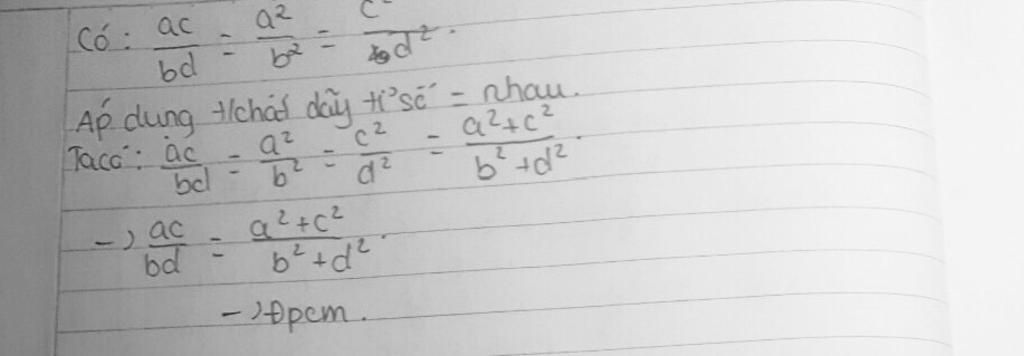 Có: ac/bd = a²/b² = c²/d².
Áp dụng t/chất dãy tỉ số = nhau.
Ta có: ac/bd = a²/b² = c²/d² = (a²+c²)/(b²+d²).
→ ac/bd = (a²+c²)/(b²+d²).
→ Đpcm.